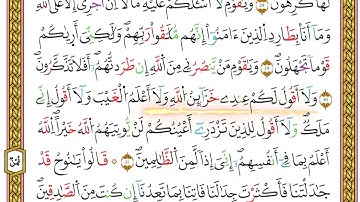 لَهَا كَٰرِهُونَ ٢٨ وَيَٰقَوْمِ لَآ أَسْـَٔلُكُمْ عَلَيْهِ مَالًا إِنْ أَجْرِىَ إِلَّا عَلَى ٱللَّهِ
وَمَآ أَنَا۠ بِطَارِدِ ٱلَّذِينَ ءَامَنُوٓا۟ إِنَّهُم مُّلَٰقُوا۟ رَبِّهِمْ وَلَٰكِنِّىٓ أَرَىٰكُمْ
قَوْمًا تَجْهَلُونَ ٢٩ وَيَٰقَوْمِ مَن يَنصُرُنِى مِنَ ٱللَّهِ إِن طَرَدتُّهُمْ أَفَلَا تَذَكَّرُونَ
٣٠ وَلَآ أَقُولُ لَكُمْ عِندِى خَزَآئِنُ ٱللَّهِ وَلَآ أَعْلَمُ ٱلْغَيْبَ وَلَآ أَقُولُ إِنِّى
مَلَكٌ وَلَآ أَقُولُ لِلَّذِينَ تَزْدَرِىٓ أَعْيُنُكُمْ لَن يُؤْتِيَهُمُ ٱللَّهُ خَيْرًا ٱللَّهُ
أَعْلَمُ بِمَا فِىٓ أَنفُسِهِمْ إِنِّىٓ إِذًا لَّمِنَ ٱلظَّٰلِمِينَ ٣١ قَالُوا۟ يَٰنُوحُ قَدْ
جَٰدَلْتَنَا فَأَكْثَرْتَ جِدَٰلَنَا فَأْتِنَا بِمَا تَعِدُنَآ إِن كُنتَ مِنَ ٱلصَّٰدِقِينَ